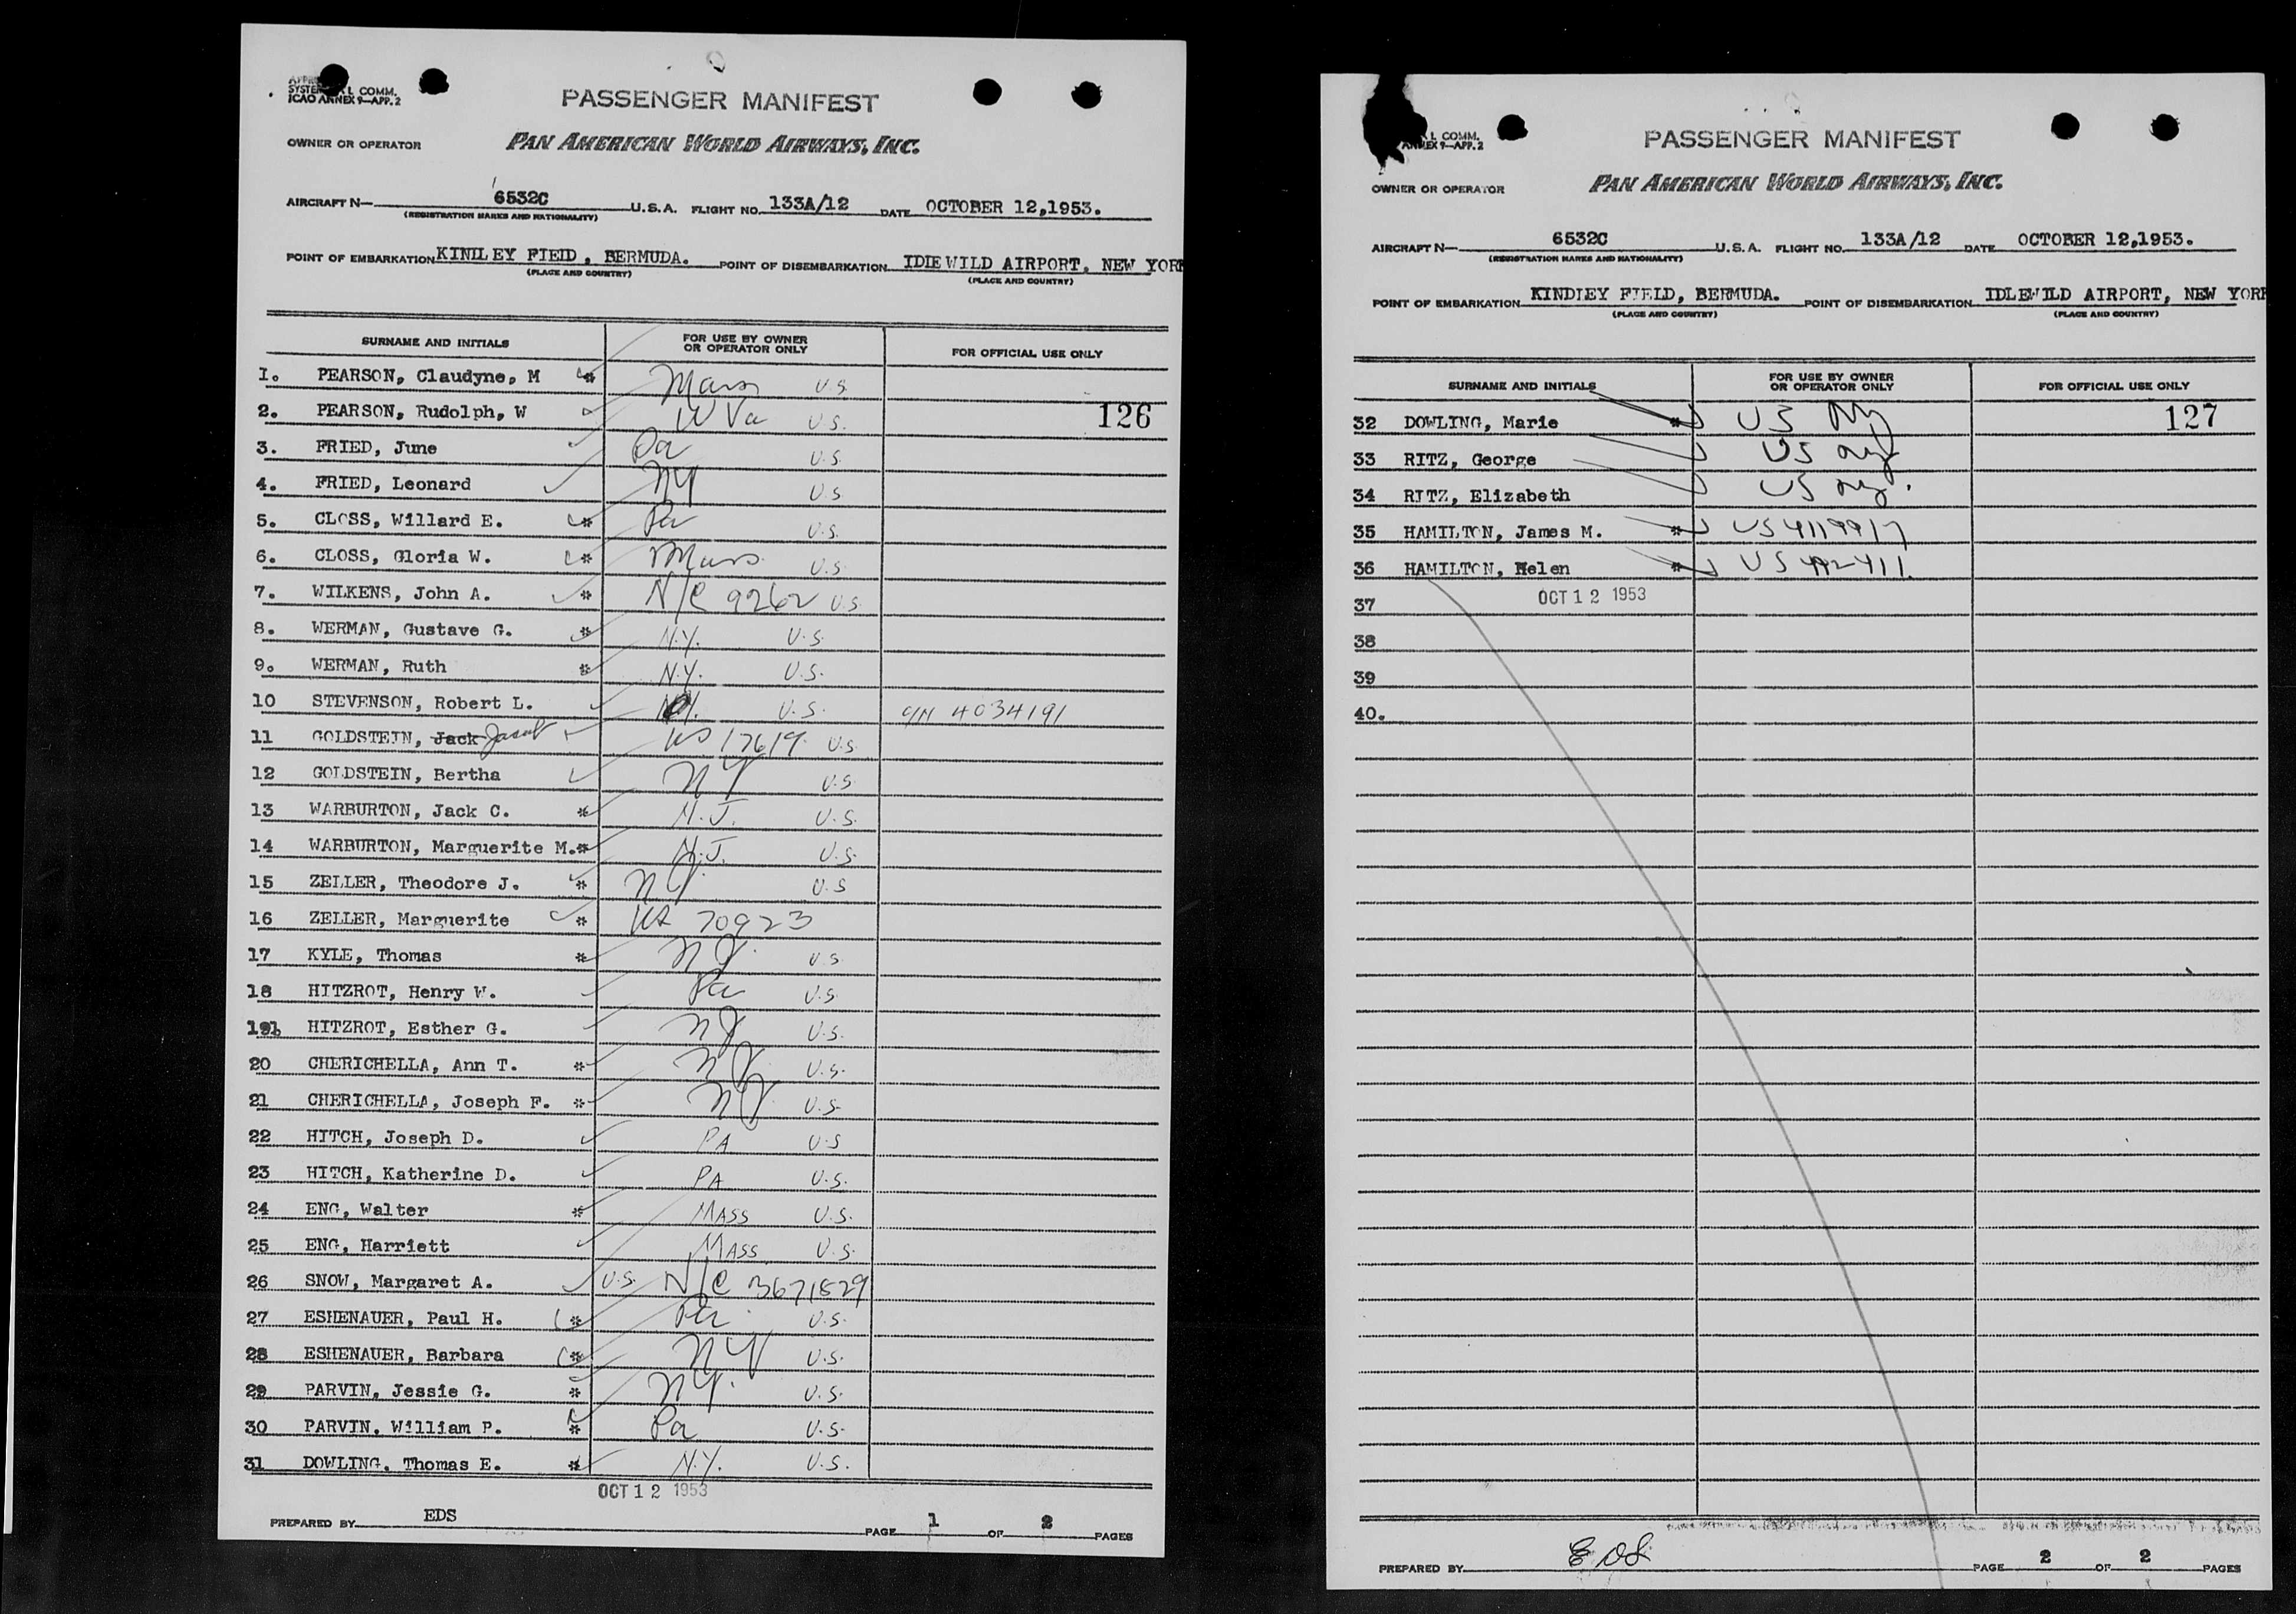 SYSTE L COMM.
ICAO ANNEX 9—APP. 2
PASSENGER MANIFEST
OWNER OR OPERATOR PAN AMERICAN WORLD AIRWAYS, INC.
AIRCRAFT N— 6532C U.S.A. FLIGHT NO. 133A/12 DATE OCTOBER 12,1953.
(REGISTRATION MARKS AND NATIONALITY)
POINT OF EMBARKATION KINDLEY FIELD, BERMUDA. POINT OF DISEMBARKATION IDLEWILD AIRPORT, NEW YORK
(PLACE AND COUNTRY) (PLACE AND COUNTRY)
SURNAME AND INITIALS FOR USE BY OWNER OR OPERATOR ONLY FOR OFFICIAL USE ONLY
1. PEARSON, Claudyne, M * Mass U.S.
126
2. PEARSON, Rudolph, W W Va U.S.
3. FRIED, June Pa U.S.
4. FRIED, Leonard NY U.S
5. CLOSS, Willard E. * Pa U.S.
6. CLOSS, Gloria W. * Mass U.S.
7. WILKENS, John A. * N/C 9262 U.S.
8. WERMAN, Gustave G. * N.Y. U.S.
9. WERMAN, Ruth * N.Y. U.S.
10 STEVENSON, Robert L. U.S. 4034191
11 GOLDSTEIN, Jack 17619 U.S.
12 GOLDSTEIN, Bertha NY U.S.
13 WARBURTON, Jack C. * N.J. U.S.
14 WARBURTON, Marguerite M.* N.J. U.S.
15 ZELLER, Theodore J. * U.S
16 ZELLER, Marguerite * 70923
17 KYLE, Thomas * NJ. U.S.
18 HITZROT, Henry W. Pa U.S.
19 HITZROT, Esther G. NJ U.S.
20 CHERICHELLA, Ann T. * NJ U.S.
21 CHERICHELLA, Joseph F. * NJ U.S.
22 HITCH, Joseph D. PA U.S
23 HITCH, Katherine D. PA U.S.
24 ENG, Walter * MASS U.S.
25 ENG, Harriett MASS U.S.
26 SNOW, Margaret A. U.S. N/C 3671529
27 ESHENAUER, Paul H. * Pa U.S.
28 ESHENAUER, Barbara * NY U.S.
29 PARVIN, Jessie G. * NY. U.S.
30 PARVIN, William P. * Pa U.S.
31 DOWLING, Thomas E. * N.Y. U.S.
OCT 12 1953
PREPARED BY EDS PAGE 1 OF 2 PAGES
L COMM.
ANNEX 9—APP. 2
PASSENGER MANIFEST
OWNER OR OPERATOR PAN AMERICAN WORLD AIRWAYS, INC.
AIRCRAFT N— 6532C U.S.A. FLIGHT NO. 133A/12 DATE OCTOBER 12,1953.
(REGISTRATION MARKS AND NATIONALITY)
POINT OF EMBARKATION KINDLEY FIELD, BERMUDA. POINT OF DISEMBARKATION IDLEWILD AIRPORT, NEW YORK
(PLACE AND COUNTRY) (PLACE AND COUNTRY)
SURNAME AND INITIALS FOR USE BY OWNER OR OPERATOR ONLY FOR OFFICIAL USE ONLY
32 DOWLING, Marie * US NY 127
33 RITZ, George US NY
34 RITZ, Elizabeth US NY.
35 HAMILTON, James M. * US 4119917
36 HAMILTON, Helen * US
37 OCT 12 1953
38
39
40.
PREPARED BY EDS PAGE 2 OF 2 PAGES